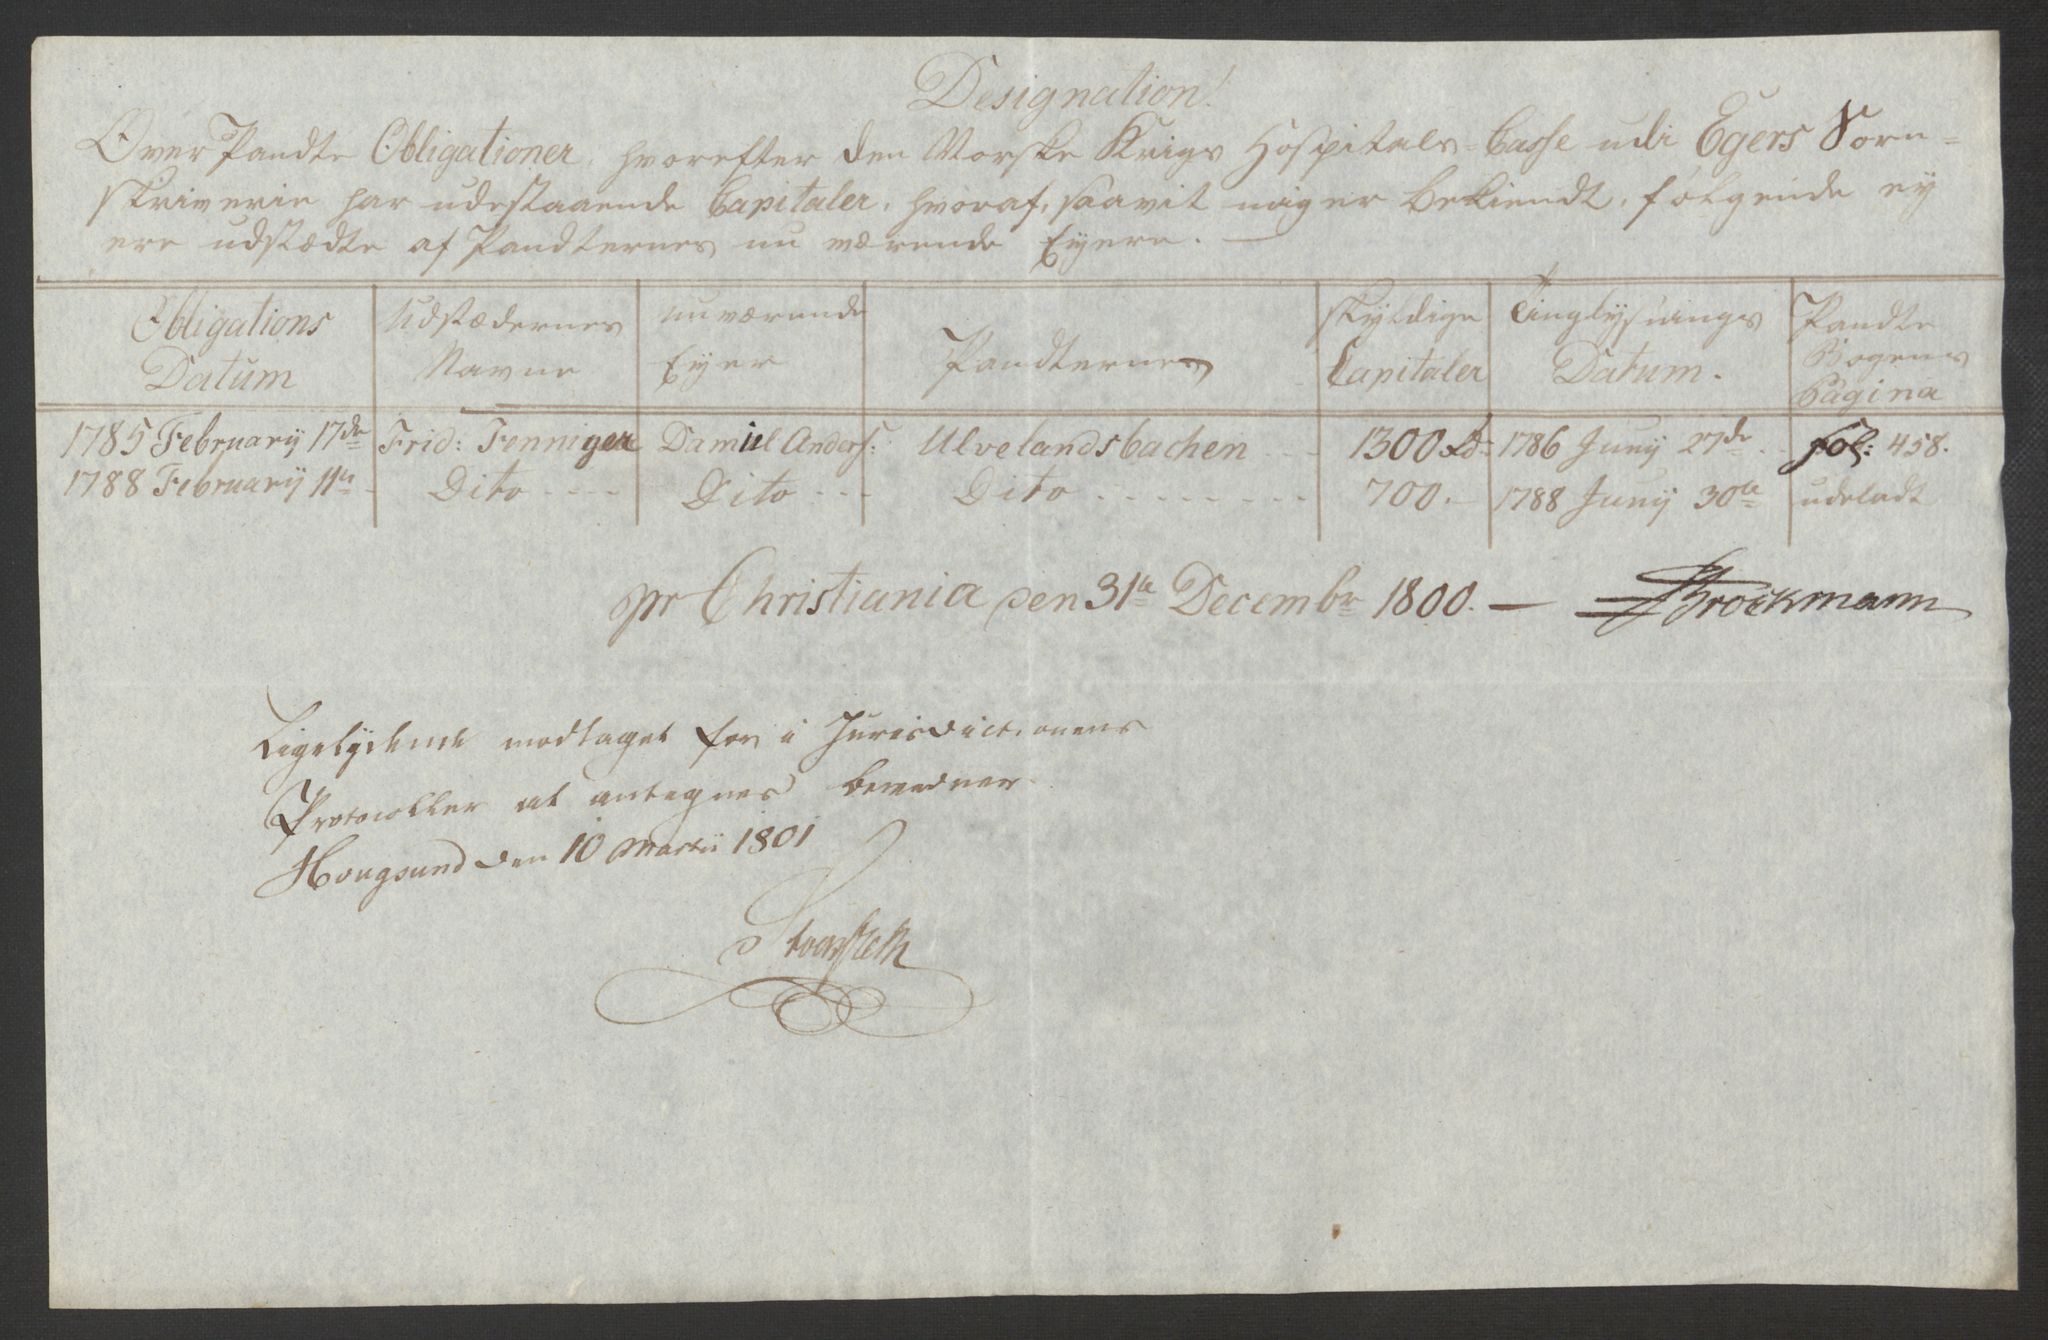 Designation.
Over Pandte Obligationer, hvorefter den Norske Krigs Hospitals-Casse udi Egers Sorn=
skriverie har udestaaende Capitaler, hvoraf, saavit mig er bekiendt, følgende ey
ere udstædte af Pandternes nu værende Eyere. —
Obligations Datum | Udstædernes Navne | nuværende Eyer | Pandternes | skyldige Capitaler | Tinglysnings Datum. | Pandte Bogens Pagina
1785 February 17de | Frid: Fenniger | Daniel Anders: | Ulvelandsbachen --- | 1300 Rd: | 1786 Juny 27de -- | Fol: 458.
1788 February 11te - | Dito ---- | Dito --- | Dito -------- | 700. — | 1788 Juny 30te | udeladt
pr Christiania den 31te Decembr 1800. — Brockmann
Ligelydende modtaget for i Jurisdictionens
Protocoller at antegnes bevidner
Hougsund den 10 Martii 1801